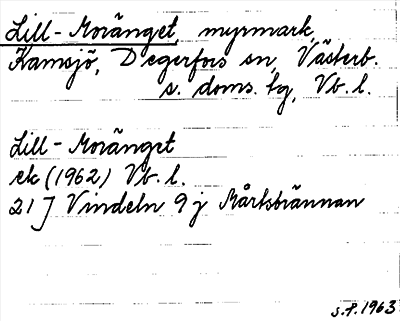 Lill-Moränget, myrmark,
Kamsjö, Degerfors sn, Västerb.
s. doms. bg, Vb. l.
Lill-Moränget
ek (1962) Vb. l.
21 J Vindeln 9 j Mårtsbrännan
S.P. 1963